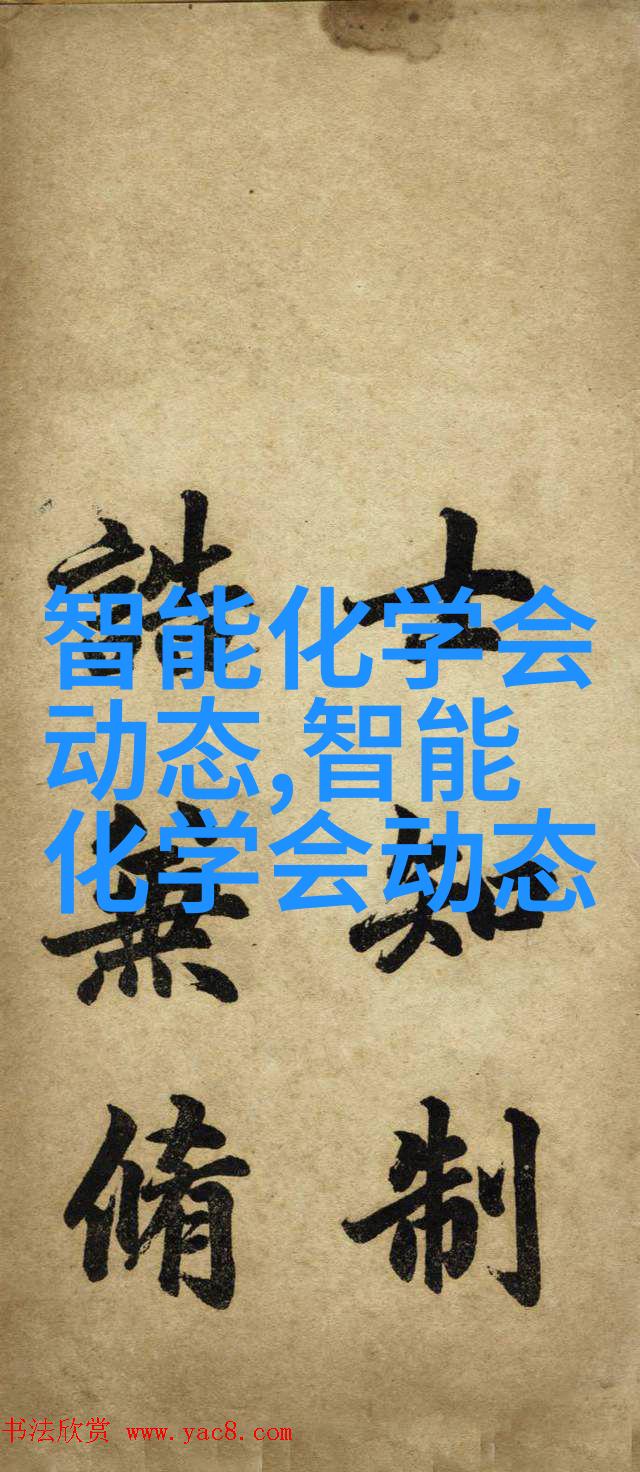 士知制
誥兼脩
智能化学会
动态,智能
化学会动态
书法欣赏 www.yac8.com